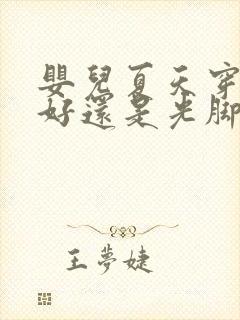 嬰兒夏天穿
好還是光脚
王夢婕